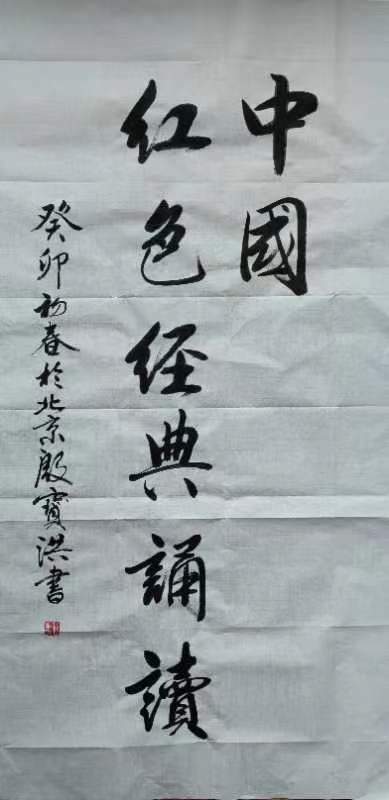 中國
红色经典誦讀
癸卯初春於北京殷寶洪書